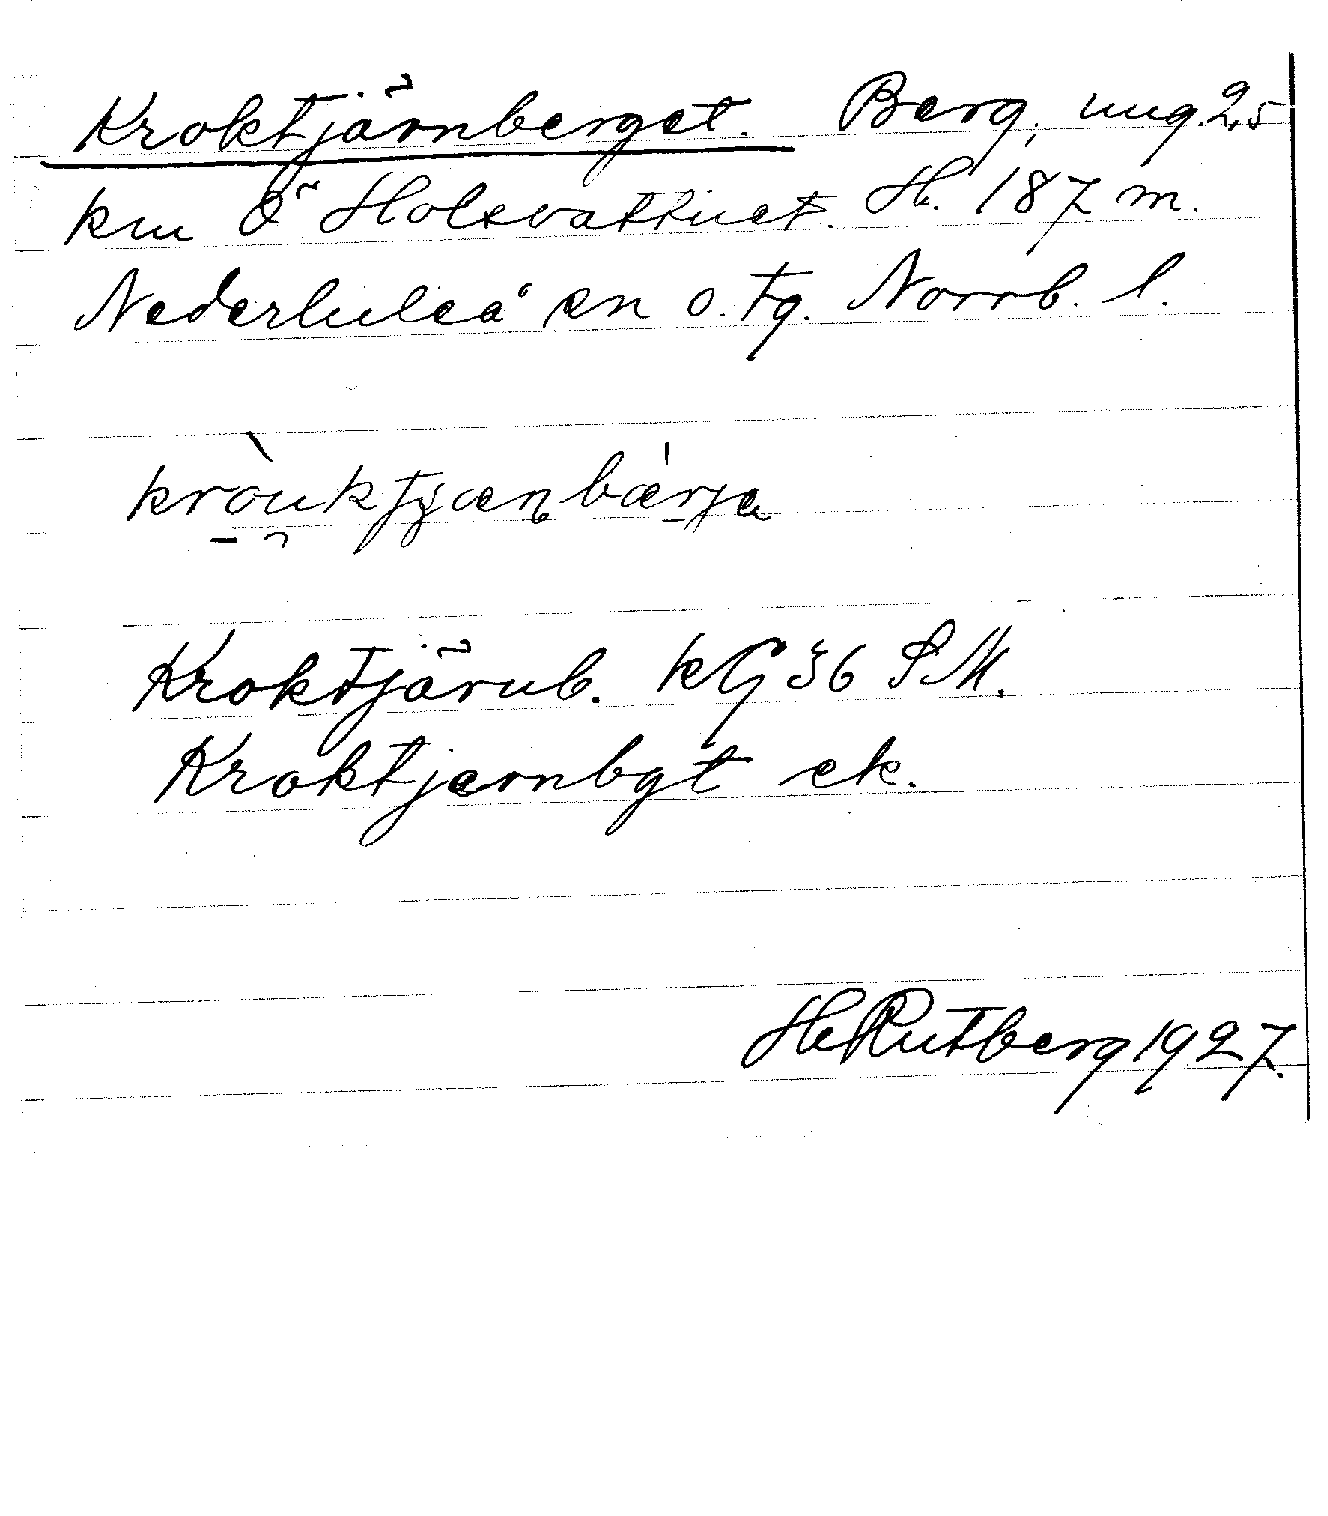 Kroktjärnberget. Berg, ung. 2,5
km Ö Holsvattnet. H. 187 m.
Nederluleå sn o. tg. Norrb. l.
Kroktjärnb. kG 36 SM.
Kroktjernbgt ek.
H. Rutberg 1927.